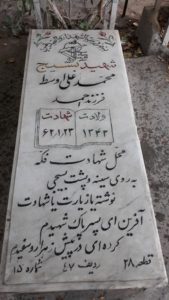 شهید بسیج
محمد علی اوسط
فرزند احمد
ولادت شهادت
۱۳۴۳ ۶۲،۱،۲۳
محل شهادت فکه
به روی سینه و پشت بسیجی
نوشته یا زیارت یا شهادت
آفرین ای پسر پاک شهیدم
کرده ای در پیش زهرا روسفیدم
قطعه ۲۸ ردیف ۴۷ شماره ۱۵